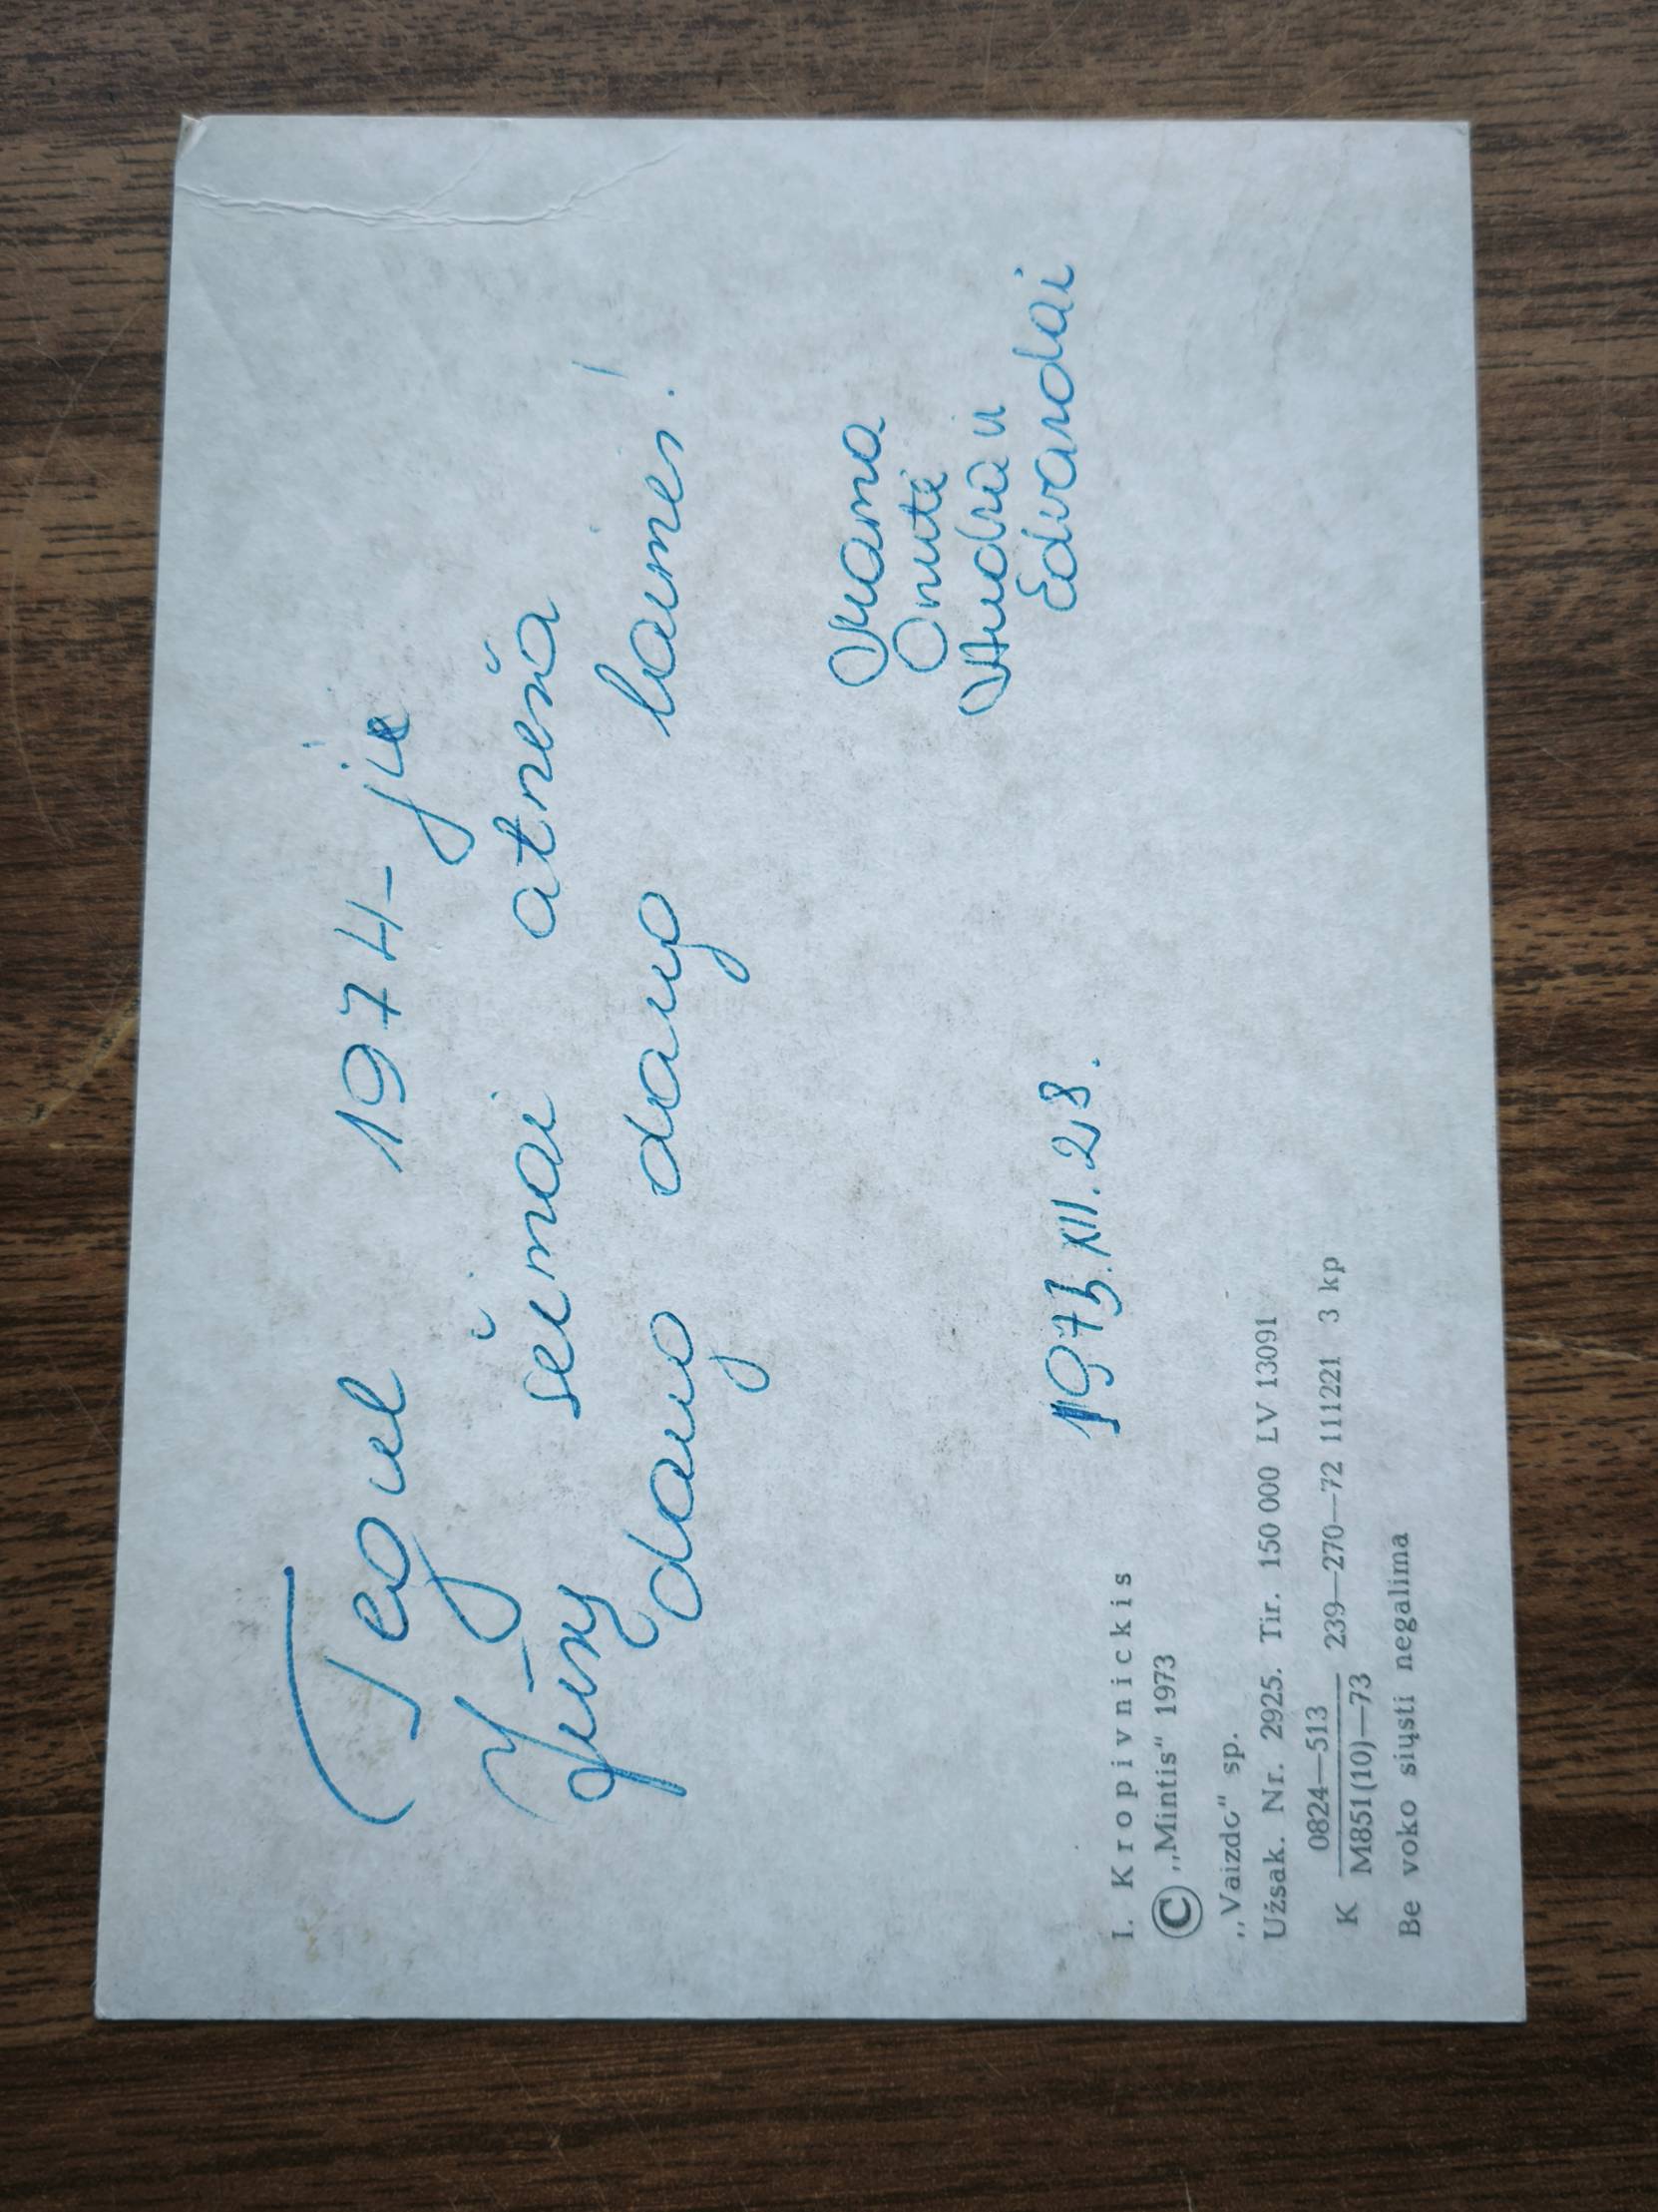 Tegul 1974-je
Jūsų šeimai atneša
daug daug laimės!
Mama
Onutė
Audra ir
Edvardai
1973.XII.28.
I. Kropivnickis
© „Mintis“ 1973
„Vaizdo“ sp.
Užsak. Nr. 2925. Tir. 150 000 LV 13091
K 0824—513
M851(10)—73 239—270—72 111221 3 kp
Be voko siųsti negalima